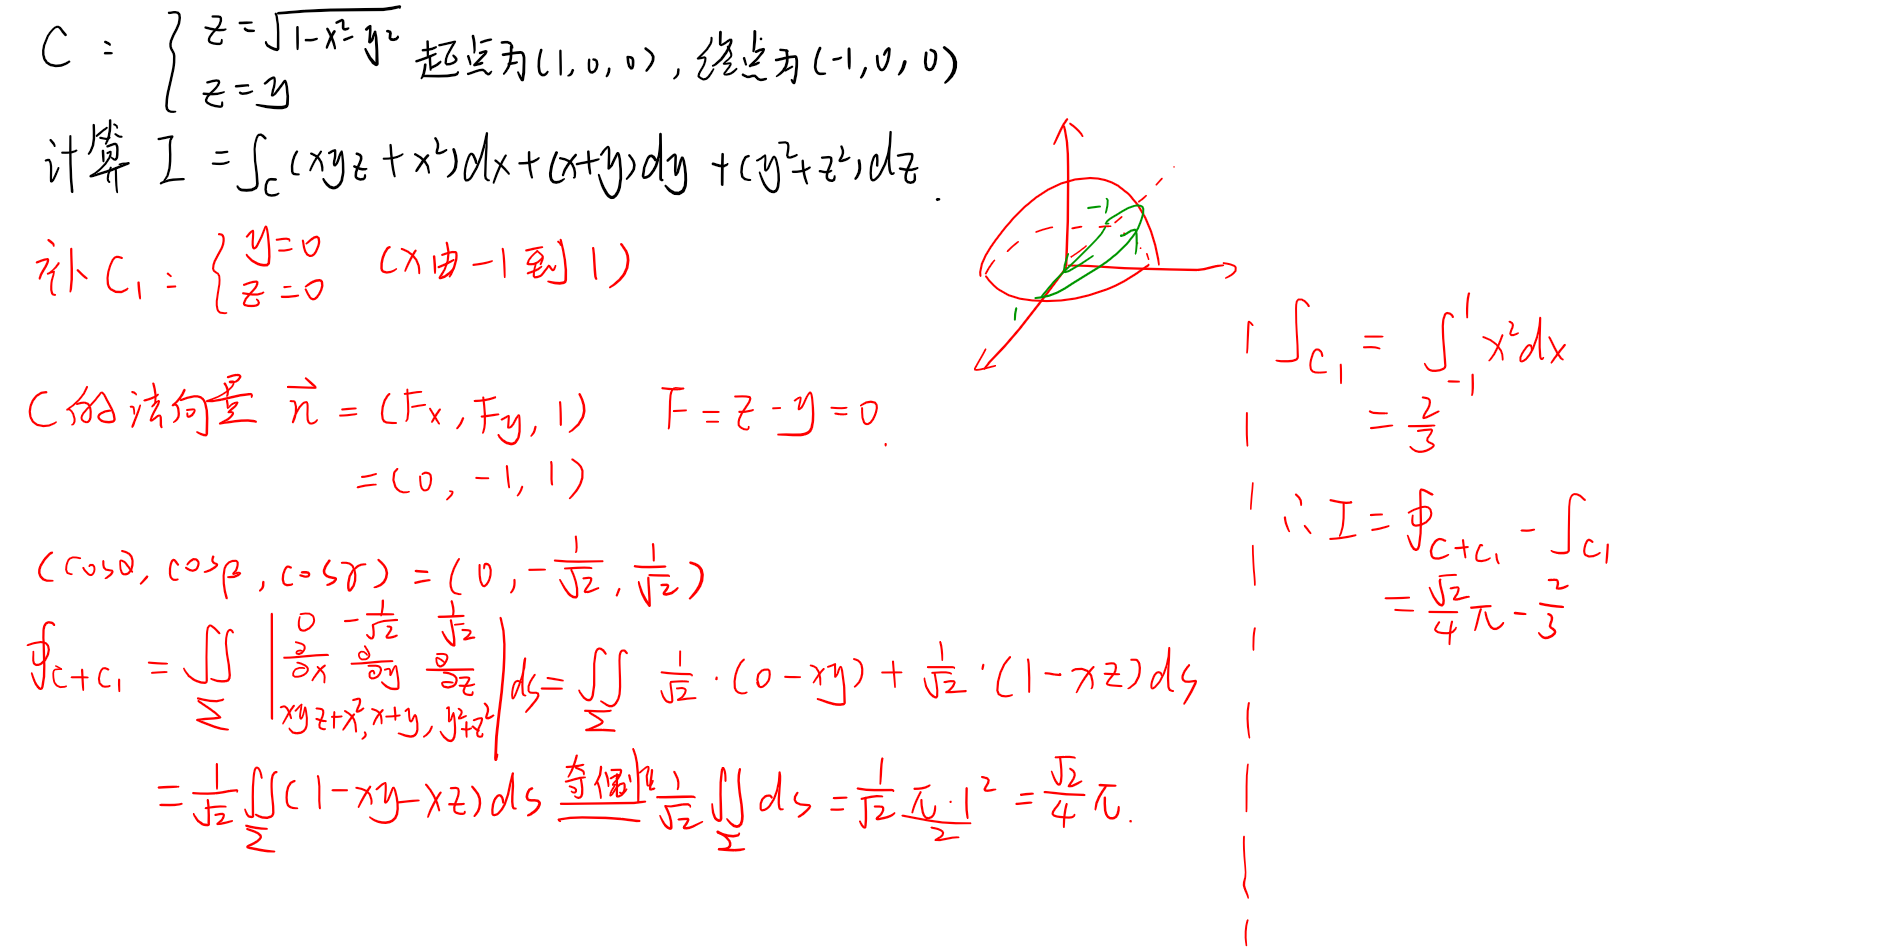 C : { z = √(1-x²-y²)
z = y
起点为(1, 0, 0), 终点为(-1, 0, 0)
计算 I = ∫_C (xyz + x²)dx + (x+y)dy + (y²+z²)dz.
补 C₁ : { y = 0
z = 0
(x由 -1 到 1)
-1
1
C的法向量 n⃗ = (Fx, Fy, 1) F = z - y = 0.
= (0, -1, 1)
(cosα, cosβ, cosγ) = (0, -1/√2, 1/√2)
∮_{C+C₁} = ∬_Σ | 0 -1/√2 1/√2 ; ∂/∂x ∂/∂y ∂/∂z ; xyz+x², x+y, y²+z² | ds = ∬_Σ 1/√2 · (0-xy) + 1/√2 · (1-xz) ds
= 1/√2 ∬_Σ (1-xy-xz) ds 奇偶性 1/√2 ∬_Σ ds = 1/√2 π·1²/2 = √2/4 π.
∫_{C₁} = ∫_{-1}^{1} x² dx
= 2/3
∴ I = ∮_{C+C₁} - ∫_{C₁}
= √2/4 π - 2/3